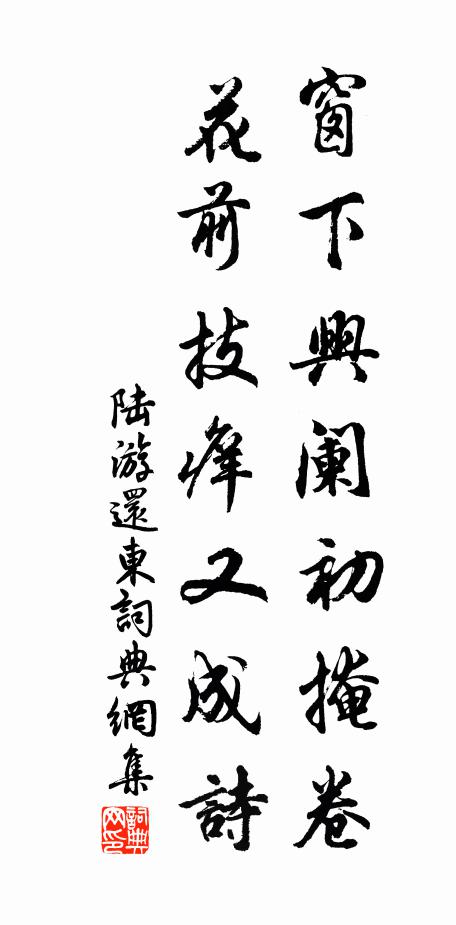 窗下興闌初掩卷
花前技癢又成詩
陆游還東詞典網集
詞典网印